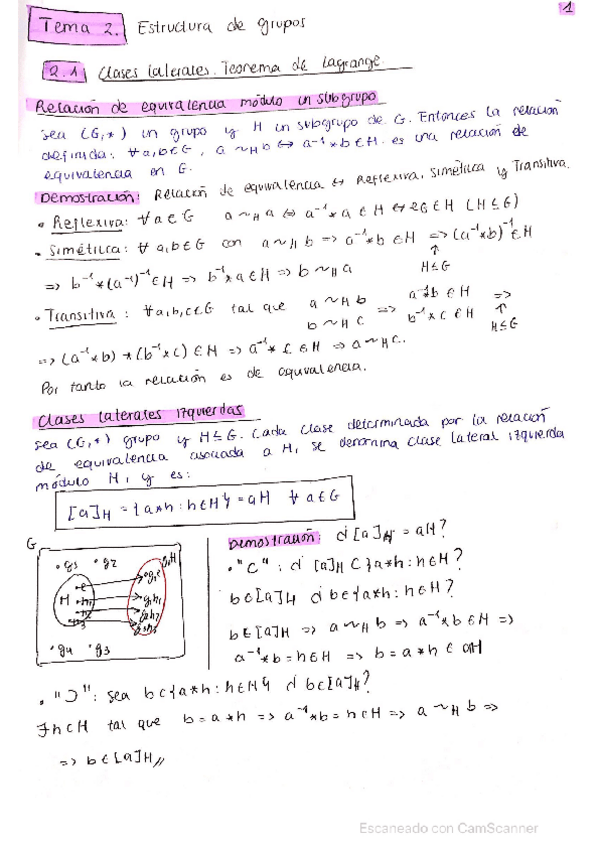 1
Tema 2. Estructura de grupos
2.1 Clases laterales. Teorema de Lagrange
Relación de equivalencia módulo un subgrupo
sea (G,*) un grupo y H un subgrupo de G. Entonces la relación
definida: ∀a,b∈G, a ~H b ⇔ a⁻¹*b∈H. es una relación de
equivalencia en G.
Demostración: Relación de equivalencia ⇔ Reflexiva, simétrica y Transitiva.
• Reflexiva: ∀a∈G a ~H a ⇔ a⁻¹*a ∈ H ⇔ e_G∈H (H≤G)
• Simétrica: ∀ a,b∈G con a ~H b => a⁻¹*b ∈ H => (a⁻¹*b)⁻¹∈H
↑
H≤G
=> b⁻¹*(a⁻¹)⁻¹∈H => b⁻¹*a∈H => b ~H a
• Transitiva: ∀a,b,c∈G tal que a ~H b => a⁻¹*b ∈ H =>
b ~H c b⁻¹*c ∈ H ↑
H≤G
=> (a⁻¹*b)*(b⁻¹*c) ∈ H => a⁻¹*c ∈ H => a ~H c.
Por tanto la relación es de equivalencia.
Clases laterales izquierdas
sea (G,*) grupo y H≤G. Cada clase determinada por la relación
de equivalencia asociada a H, se denomina clase lateral izquierda
módulo H, y es:
[a]H = {a*h : h∈H} = aH ∀ a∈G
G
• g5 • g2 g1H
H e g1
h1 g1h1
h2 g1h2
h3 g1h3
• g4 • g3
Demostración: ¿[a]H = aH?
• "⊂": ¿[a]H ⊂ {a*h : h∈H}?
b∈[a]H ¿b∈{a*h : h∈H}?
b∈[a]H => a ~H b => a⁻¹*b ∈ H =>
a⁻¹*b = h∈H => b = a*h ∈ aH
• "⊃": sea b∈{a*h : h∈H} ¿b∈[a]H?
∃h∈H tal que b = a*h => a⁻¹*b = h∈H => a ~H b =>
=> b∈[a]H //
Escaneado con CamScanner